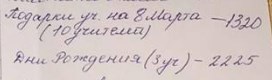 Подарки уч. на 8 Марта — 1320
(10 учителя)
Дни Рождения (3 уч) — 2225